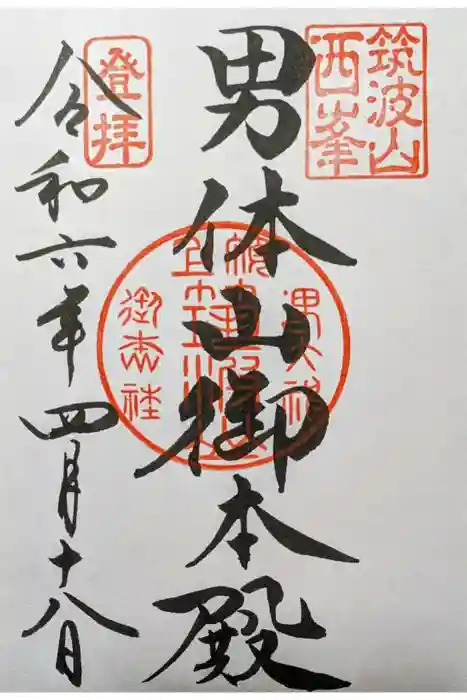 筑波山
西峯
男体山御本殿
登拝
令和六年四月十八日